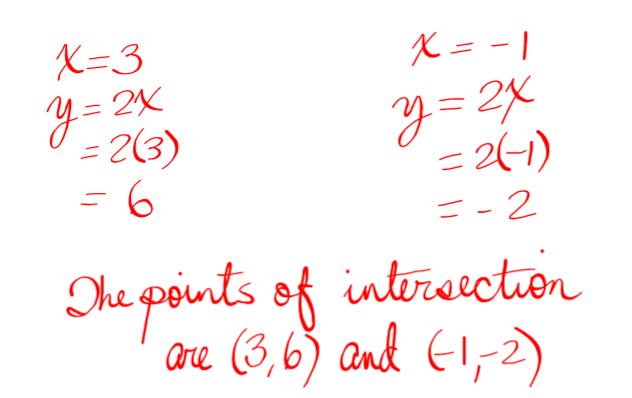 x = 3
y = 2x
= 2(3)
= 6
x = -1
y = 2x
= 2(-1)
= -2
The points of intersection
are (3,6) and (-1,-2)